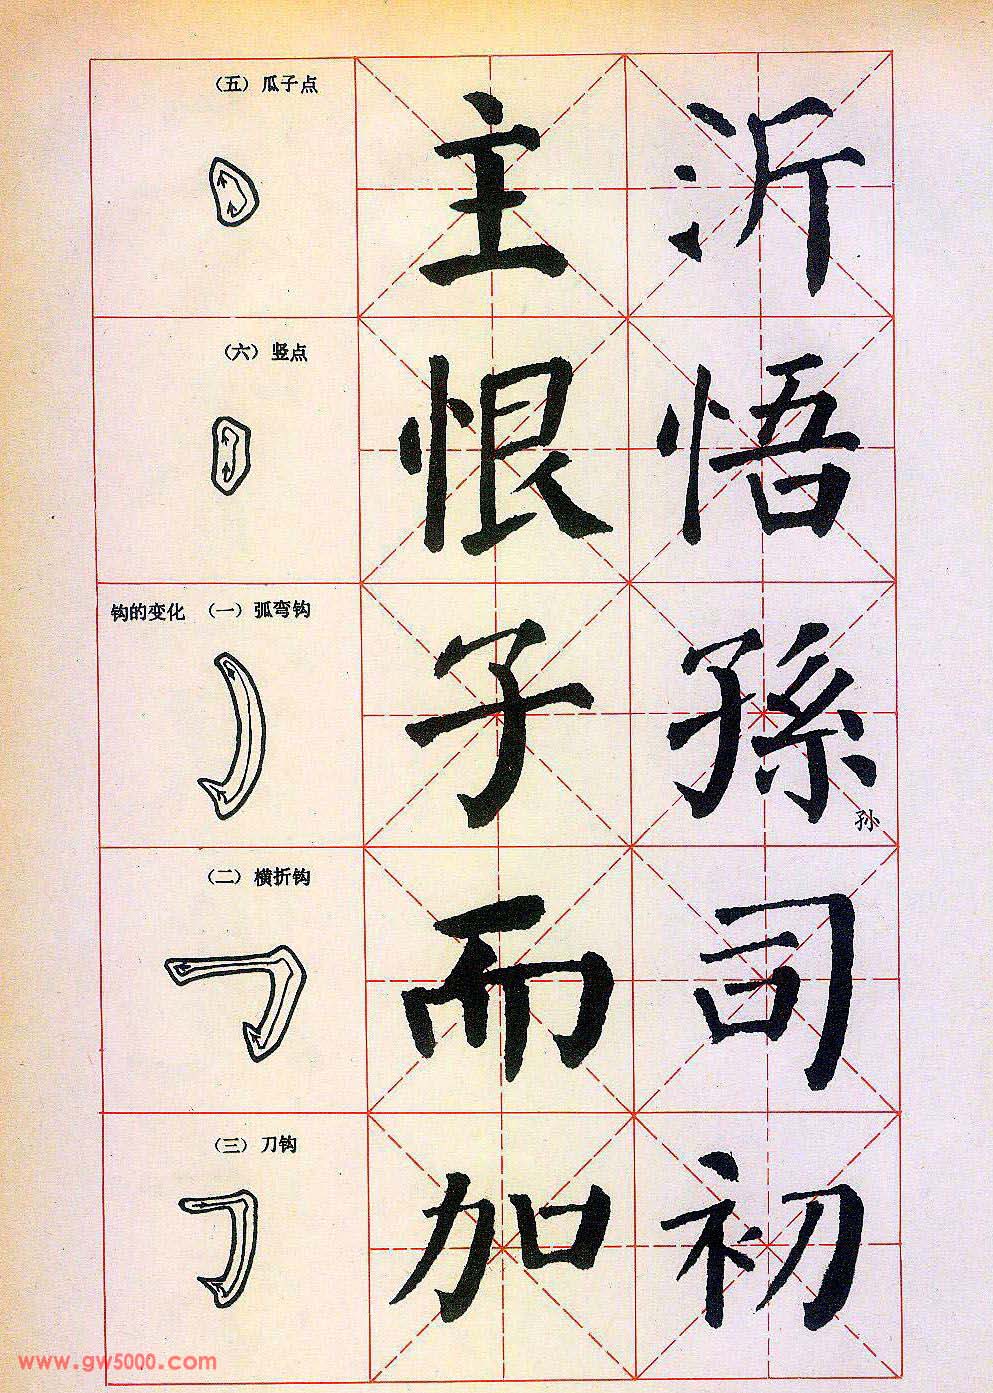 (五)瓜子点
主 沂
(六)竖点
恨 悟
钩的变化 (一)弧弯钩
子 孫
孙
(二)横折钩
而 司
(三)刀钩
加 初
www.gw5000.com